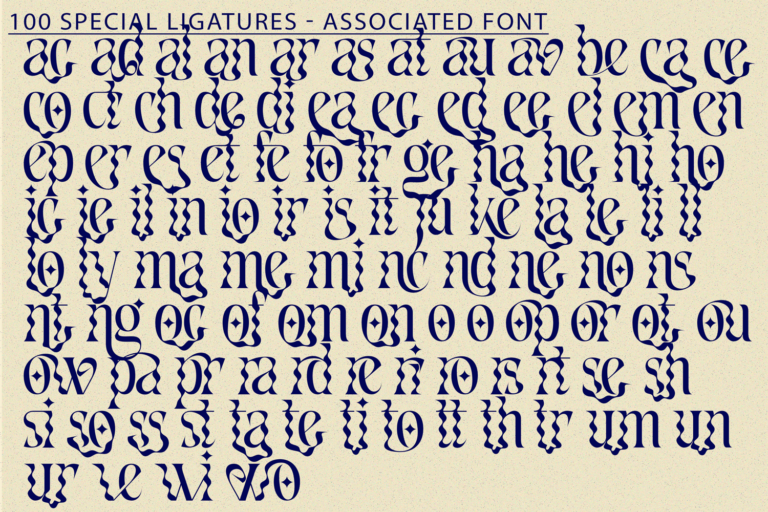 100 SPECIAL LIGATURES - ASSOCIATED FONT
ac ad al an ar as at au av be ca ce
co ct ch de di ea ec ed ee el em en
ep er es et fe fo fr ge ha he hi ho
ic ie il in io ir is it ju ke la le li ll
lo ly ma me mi nc nd ne no ns
nt ng oc of om on o o op or ot ou
ow pa pr ra rd re ri ro rs rt se sh
si so ss st ta te ti to tt th tr um un
ur ve wi wo